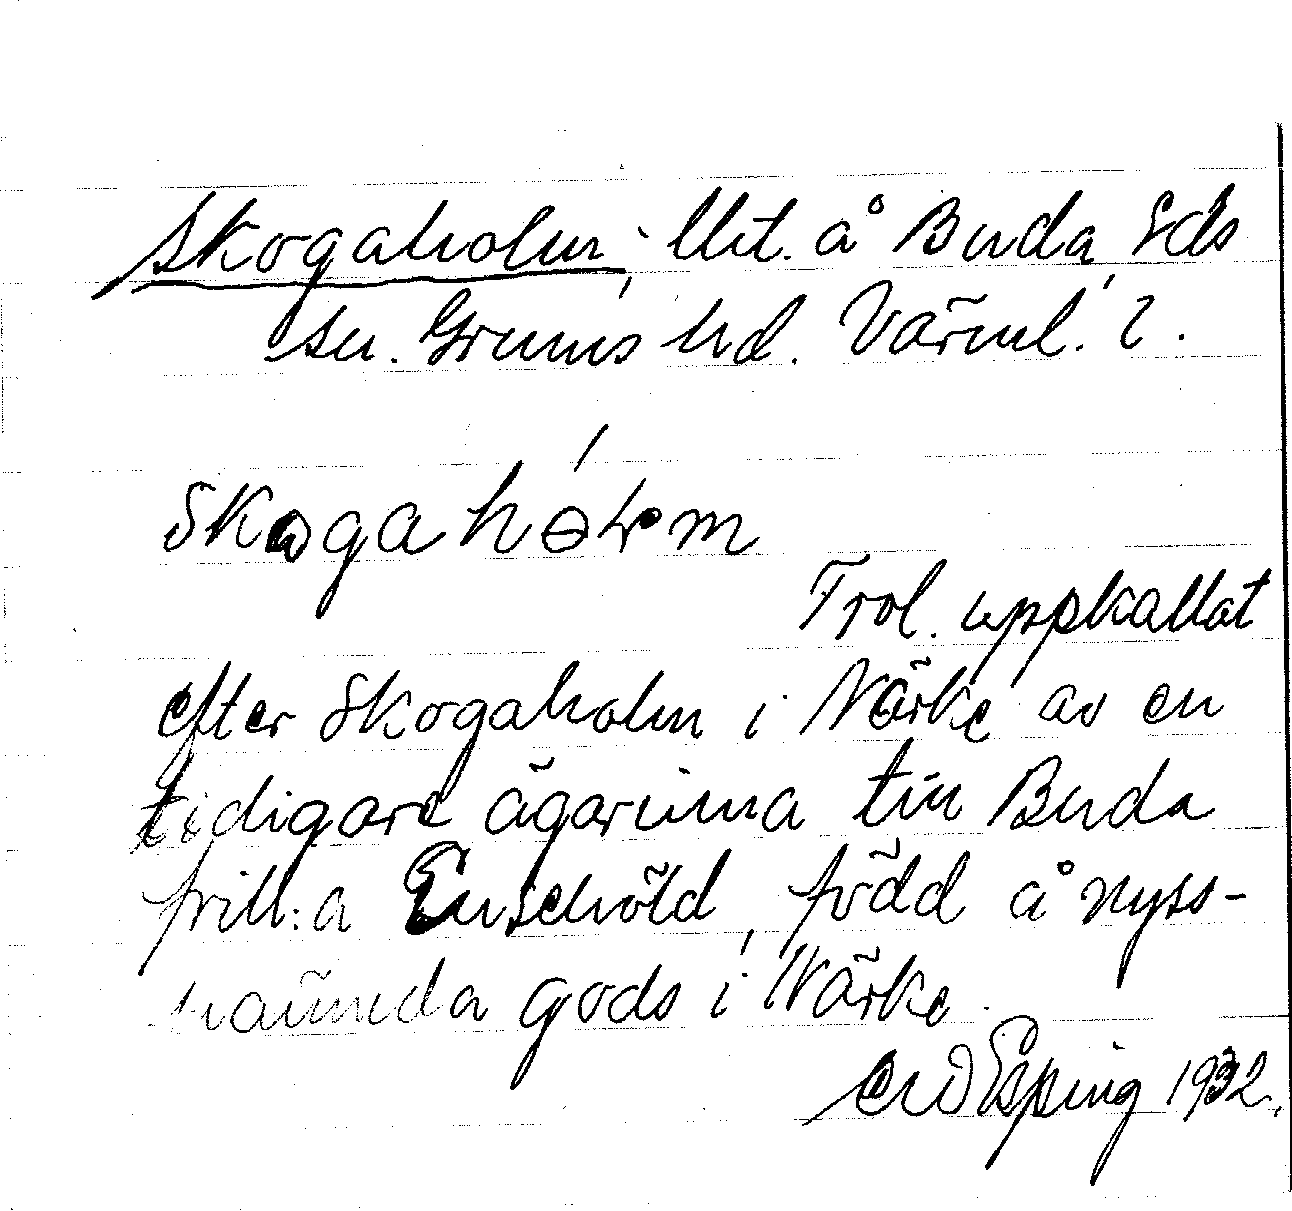 Skogaholm, lht. å Buda, Eds
sn. Grums hd. Värml. l.
Skogahólm
Trol. uppkallat
efter Skogaholm i Närke av en
tidigare ägarinna till Buda
frill:a Enschöld, född å nyss-
nämnda gods i Närke.
Esping 1932.